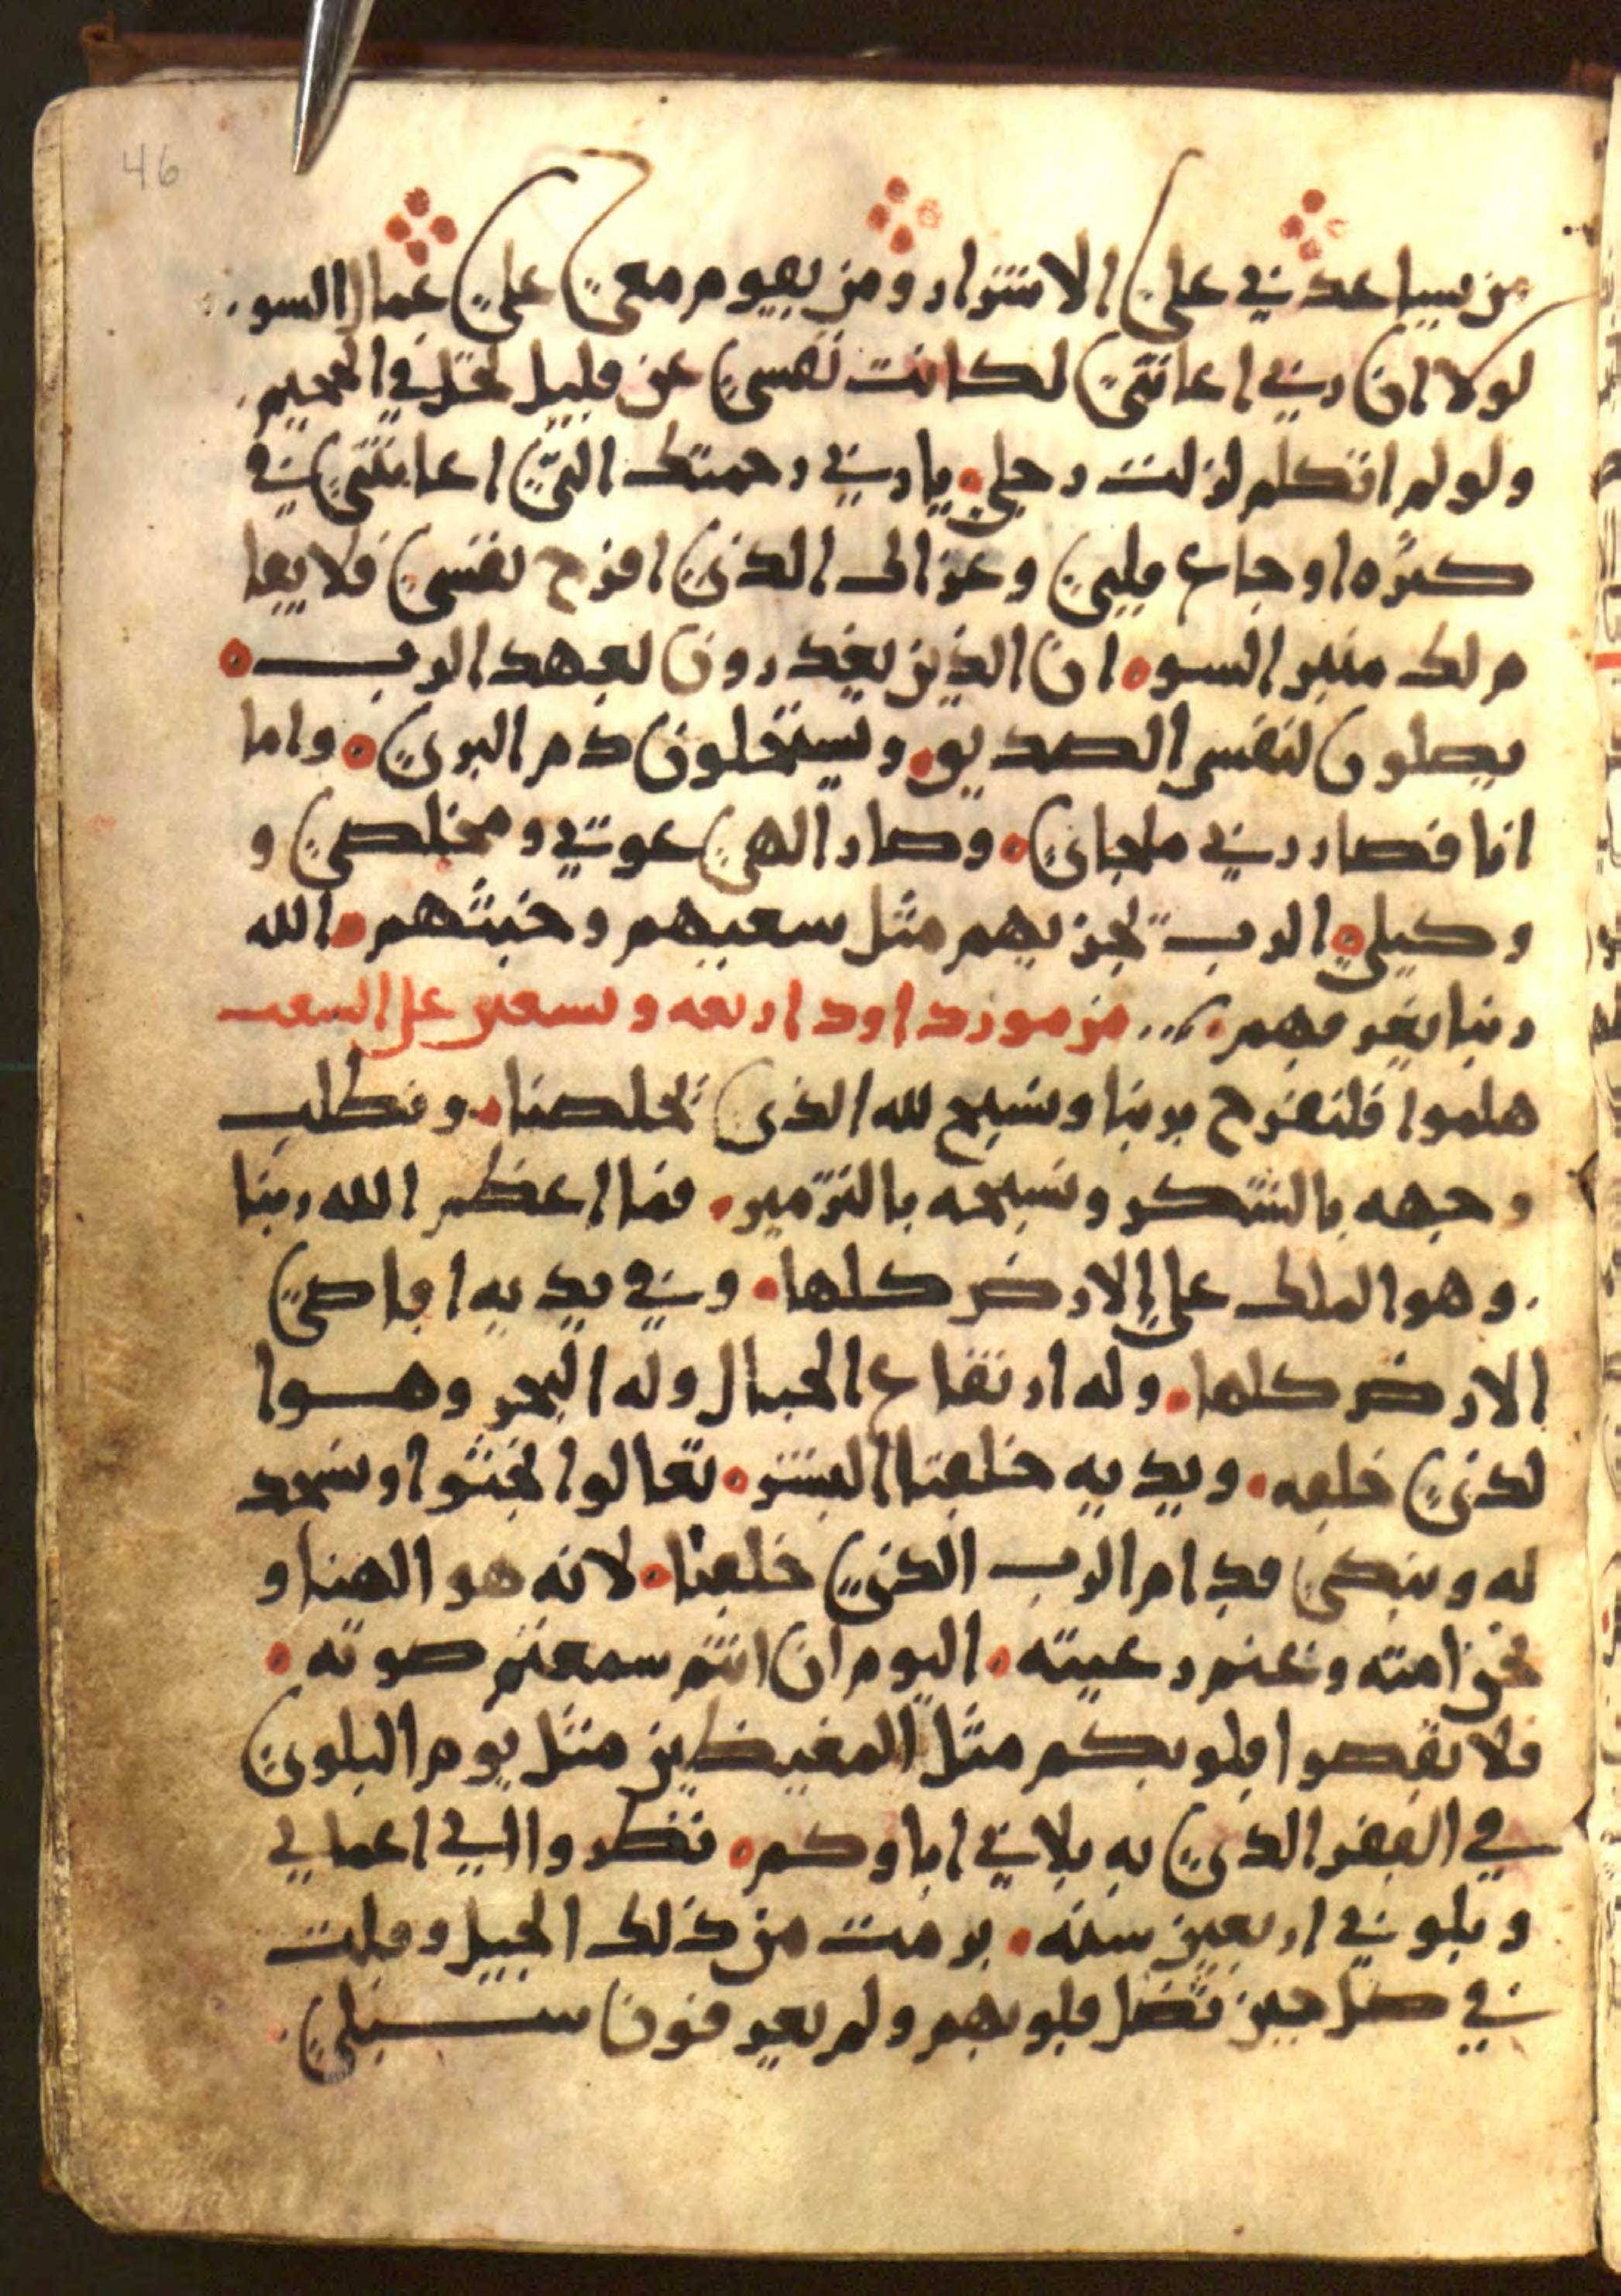 46
من يساعدني على الاشرار ومن يقوم معي على عمال السو
لولا ان ربي اعانني لكانت نفسي عن قليل تحل في الجحيم
ولو لم اتكلم لزلت رجلي يا ربي رحمتك التي اعانتني في
كثره اوجاع قلبي وعزاك الذي افرح نفسي فلا يقا
م لك منبر السو ان الذين يغدرون بعهد الرب
يصلون لنفس الصديق ويستحلون دم البري واما
انا فصار ربي ملجاي وصار الهي عوني ومخلصي و
وكيلي الرب يجزيهم مثل سعيهم وخبثهم الله
ربنا يغرقهم مزمور داود اربعه وتسعين على السعب
هلموا فلنفرح بربنا ونسبح لله الذي يخلصنا ونطلب
وجهه بالشكر ونسبحه بالتزمير فما اعظم الله ربنا
وهو الملك على الارض كلها وفي يديه اقاصي
الارض كلها وله ارتفاع الجبال وله البحر وهوا
لذي خلقه وبيديه خلقنا البشر تعالوا نجثوا ونسجد
له ونبكي قدام الرب الذي خلقنا لانه هو الهنا و
نحن امته وغنم رعيته اليوم ان انتم سمعتم صوته
فلا تقصوا قلوبكم مثل المغيظين مثل يوم البلوى
في القفر الذي به بلاني اباوكم نظروا الى اعمالي
وبلوني اربعين سنه برمت من ذلك الجيل وقلت
في كل حين تضل قلوبهم ولم يعرفون سبلي